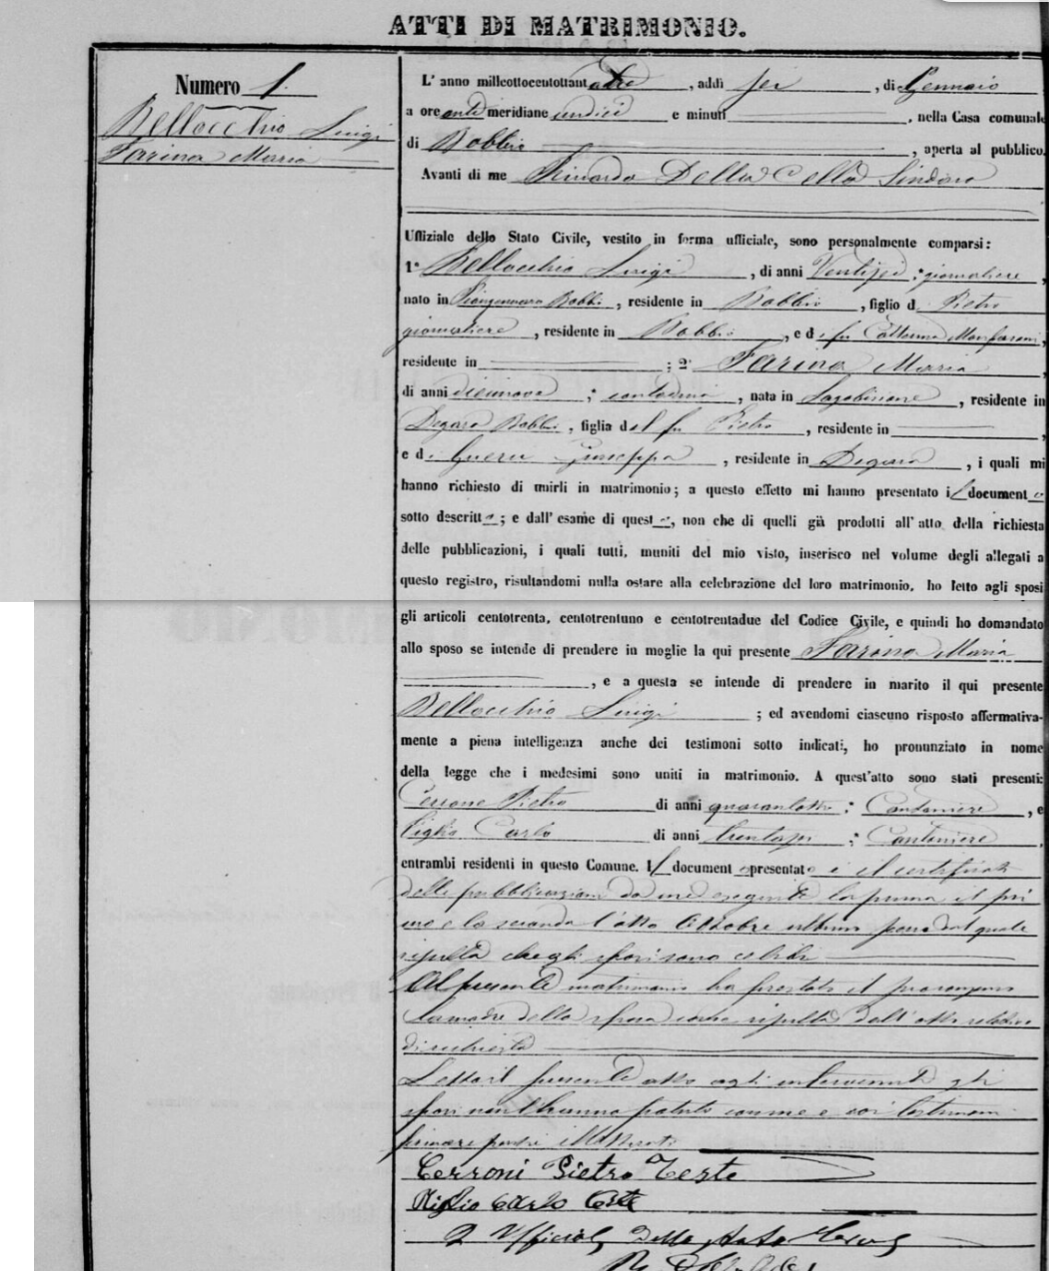 ATTI DI MATRIMONIO.
Numero 1.
Bellocchio Luigi
Farina Maria
L' anno milleottocentottantatre, addì sei, di Gennaio
a ore antimeridiane undici e minuti, nella Casa comunale
di Bobbio, aperta al pubblico.
Avanti di me Della Cella Sindaco
Uffiziale dello Stato Civile, vestito in forma ufficiale, sono personalmente comparsi:
1° Bellocchio Luigi, di anni Ventisei; giornaliere,
nato in Bobbio, residente in Bobbio, figlio d Pietro
giornaliere, residente in Bobbio, e di fu Catterina
residente in ; 2° Farina Maria
di anni diecinove; contadina, nata in, residente in
Degara Bobbio, figlia del fu Pietro, residente in,
e di Giuseppa, residente in Degara, i quali mi
hanno richiesto di unirli in matrimonio; a questo effetto mi hanno presentato il documento
sotto descritto; e dall' esame di questo, non che di quelli già prodotti all' atto della richiesta
delle pubblicazioni, i quali tutti, muniti del mio visto, inserisco nel volume degli allegati a
questo registro, risultandomi nulla ostare alla celebrazione del loro matrimonio, ho letto agli sposi
gli articoli centotrenta, centotrentuno e centotrentadue del Codice Civile, e quindi ho domandato
allo sposo se intende di prendere in moglie la qui presente Farina Maria
, e a questa se intende di prendere in marito il qui presente
Bellocchio Luigi; ed avendomi ciascuno risposto affermativa-
mente a piena intelligenza anche dei testimoni sotto indicati, ho pronunziato in nome
della legge che i medesimi sono uniti in matrimonio. A quest'atto sono stati presenti:
Cerrone Pietro di anni quarantotto; Cantoniere, e
Piglio Carlo di anni trentasei; Cantiniere,
entrambi residenti in questo Comune. Il documento presentato è il certificato
delle pubblicazioni da me eseguite la prima il pri
mo e la seconda l'otto Ottobre ultimo passato dal quale
risulta che gli sposi sono celibi
Al presente matrimonio ha prestato il
la madre della sposa come risulta dall'atto relativo
di richiesta
Letto il presente atto agli intervenuti gli
sposi non l'hanno potuto con me e coi testimoni
firmare perché illetterati
Cerroni Pietro Teste
Carlo Teste
L'Ufficiale dello Stato Civile